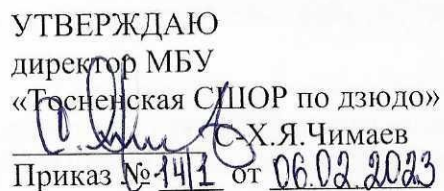 УТВЕРЖДАЮ
директор МБУ
«Тосненская СШОР по дзюдо»
С-Х.Я.Чимаев
Приказ № 14/1 от 06.02.2023